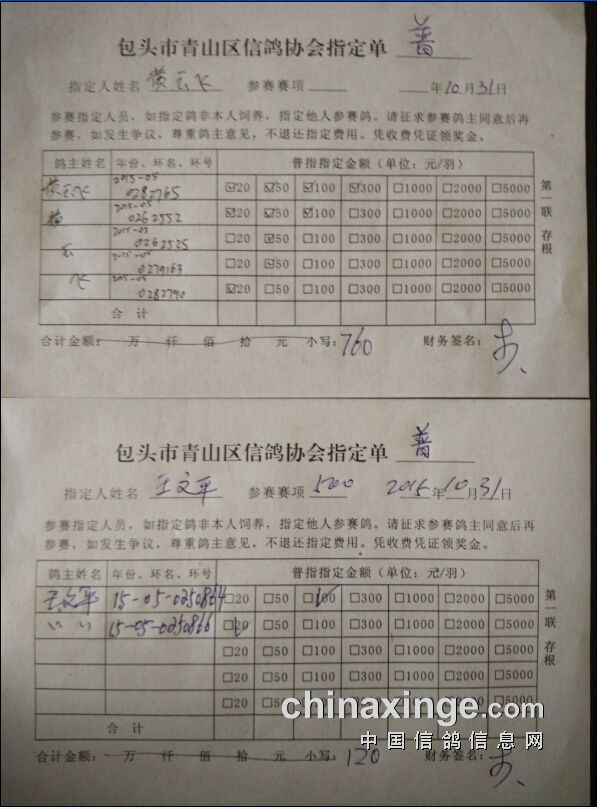 包头市青山区信鸽协会指定单 普
指定人姓名 黄玉飞 参赛赛项 年10月31日
参赛指定人员，如指定鸽非本人饲养，指定他人参赛鸽。请征求参赛鸽主同意后再
参赛，如发生争议，尊重鸽主意见，不退还指定费用。凭收费凭证领奖金。
鸽主姓名 年份、环名、环号 普指指定金额（单位：元/羽）
黄玉飞 2015-05 0282765 ☑20 ☑50 ☑100 ☑300 □1000 □2000 □5000
2015-05 0262552 ☑20 ☑50 ☑100 □300 □1000 □2000 □5000
2015-05 0262525 □20 ☑50 □100 □300 □1000 □2000 □5000
2015-05 0279163 □20 ☑50 □100 □300 □1000 □2000 □5000
飞 2015-05 0282790 ☑20 □50 □100 □300 □1000 □2000 □5000
合 计
第一联 存根
合计金额： 万 仟 佰 拾 元 小写：760 财务签名：
包头市青山区信鸽协会指定单 普
指定人姓名 王文平 参赛赛项 500 2015年10月31日
参赛指定人员，如指定鸽非本人饲养，指定他人参赛鸽。请征求参赛鸽主同意后再
参赛，如发生争议，尊重鸽主意见，不退还指定费用。凭收费凭证领奖金。
鸽主姓名 年份、环名、环号 普指指定金额（单位：元/羽）
王文平 15-05-0250864 □20 □50 ☑100 □300 □1000 □2000 □5000
〃 〃 15-05-0250866 ☑20 □50 □100 □300 □1000 □2000 □5000
□20 □50 □100 □300 □1000 □2000 □5000
□20 □50 □100 □300 □1000 □2000 □5000
□20 □50 □100 □300 □1000 □2000 □5000
合 计
第一联 存根
chinaxinge.com
中国信鸽信息网
合计金额： 万 仟 佰 拾 元 小写：120 财务签名：